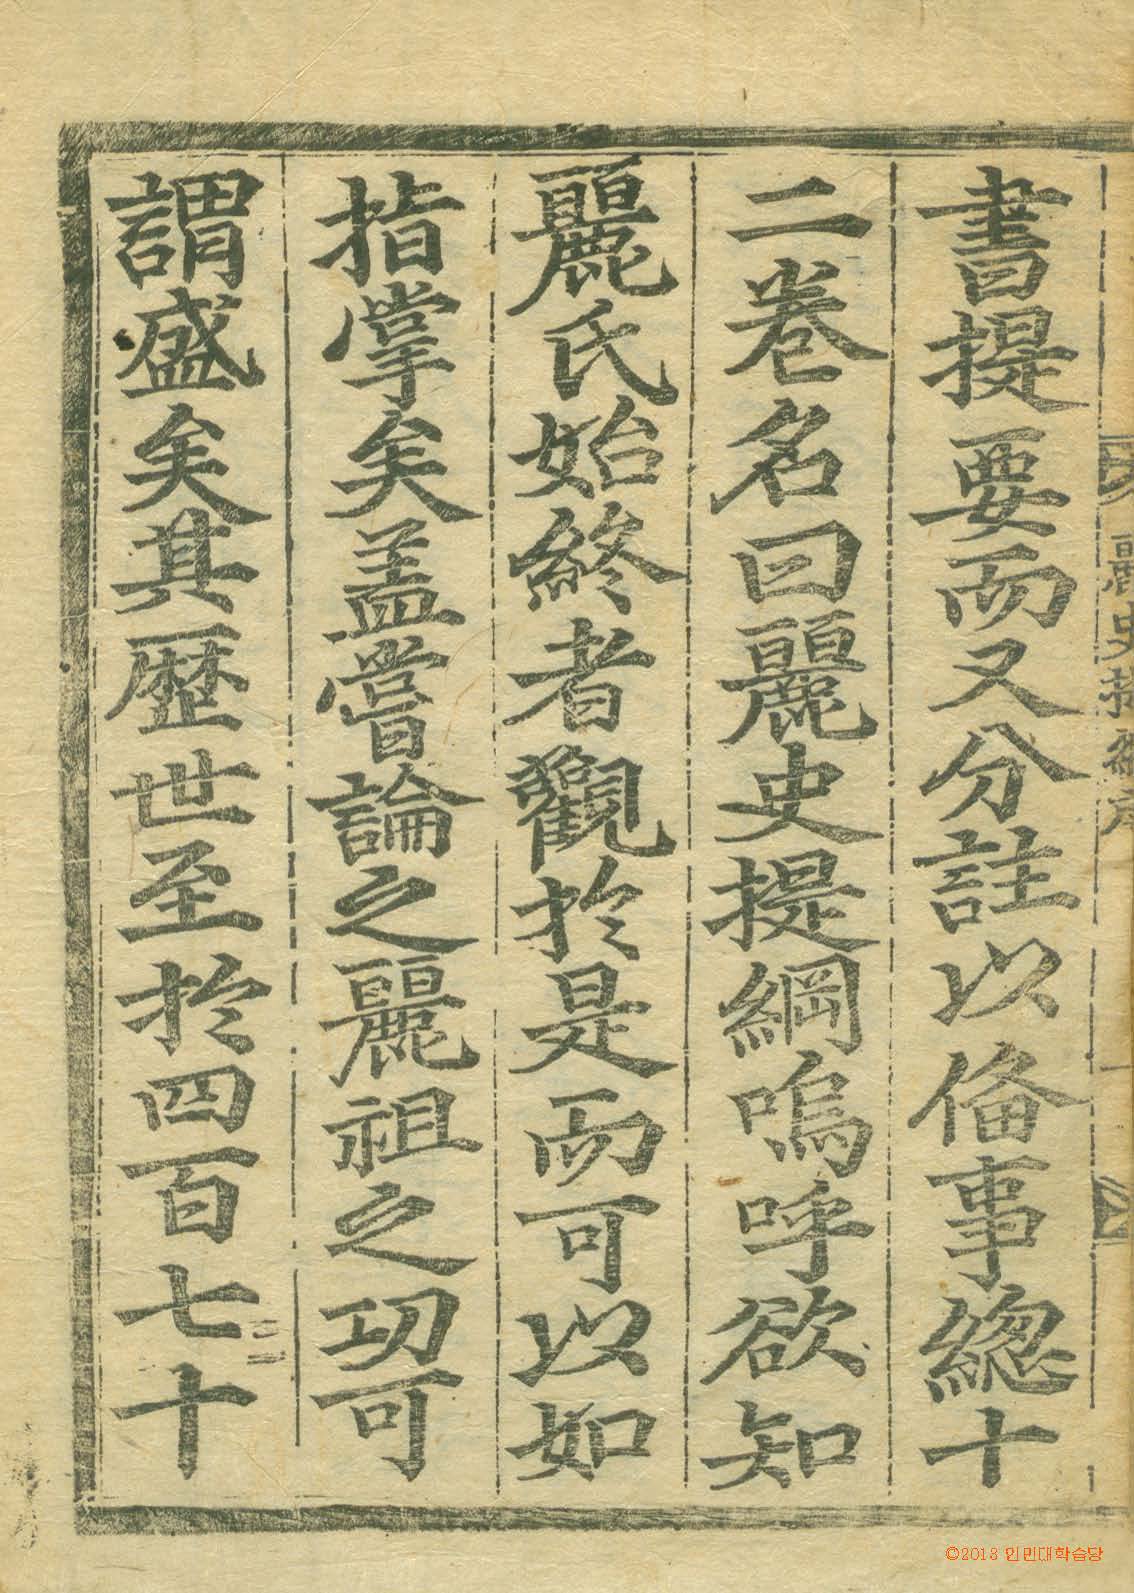 麗史提綱序 一
書提要而又分註以俻事緫十
二卷名曰麗史提綱嗚呼欲知
麗氏始終者觀於是而可以如
指掌矣盖嘗論之麗祖之功可
謂盛矣其歷世至於四百七十
©2013 인민대학습당